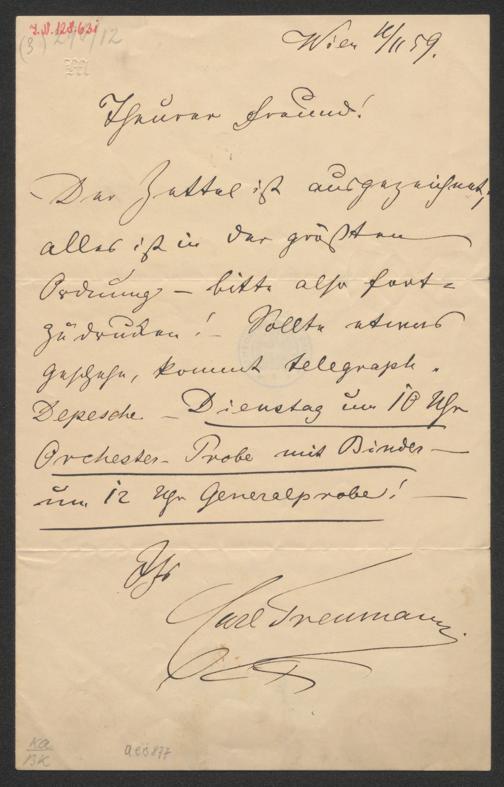 I.N. 128.631
(3)
M
Wien 10/11 59.
Theurer Freund!
Der Zettel ist ausgezeichnet,
alles ist in der größten
Ordnung – bitte also fort=
zudrucken! – Sollte etwas
geschehn, kommt telegraph.
Depesche – Dienstag um 10 Uhr
Orchester-Probe mit Binder –
um 12 Uhr Generalprobe! –
Ihr
Carl Treumann